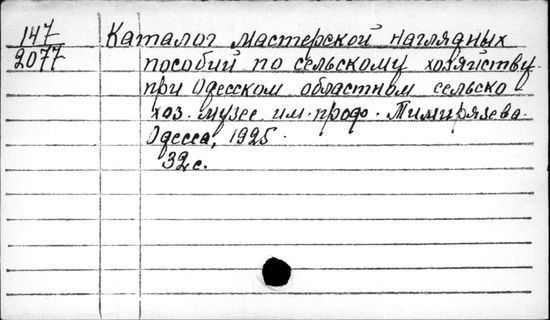 147 Каталог мастерской наглядных
2077 пособий по сельскому хозяйству
при Одесском областном сельско
хоз. музее им. проф. Тимирязева.
Одесса, 1925.
32 с.